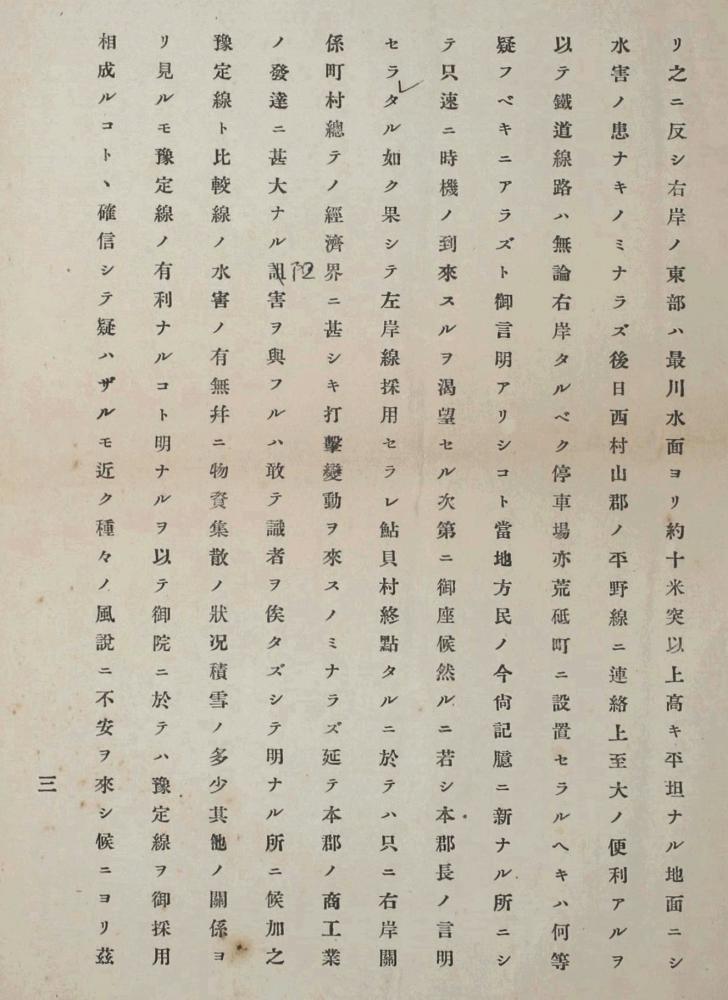 リ之ニ反シ右岸ノ東部ハ最川水面ヨリ約十米突以上高キ平坦ナル地面ニシ
水害ノ患ナキノミナラズ後日西村山郡ノ平野線ニ連絡上至大ノ便利アルヲ
以テ鐵道線路ハ無論右岸タルベク停車場亦荒砥町ニ設置セラルヘキハ何等
疑フベキニアラズト御言明アリシコト當地方民ノ今尙記臆ニ新ナル所ニシ
テ只速ニ時機ノ到來スルヲ渴望セル次第ニ御座候然ルニ若シ本郡長ノ言明
セラタル如ク果シテ左岸線採用セラレ鮎貝村終點タルニ於テハ只ニ右岸關
係町村總テノ經濟界ニ甚シキ打擊變動ヲ來スノミナラズ延テ本郡ノ商工業
ノ發達ニ甚大ナル詛害ヲ與フルハ敢テ識者ヲ俟タズシテ明ナル所ニ候加之
豫定線ト比較線ノ水害ノ有無幷ニ物資集散ノ狀況積雪ノ多少其他ノ關係ヨ
リ見ルモ豫定線ノ有利ナルコト明ナルヲ以テ御院ニ於テハ豫定線ヲ御採用
相成ルコトヽ確信シテ疑ハザルモ近ク種々ノ風說ニ不安ヲ來シ候ニヨリ茲
三